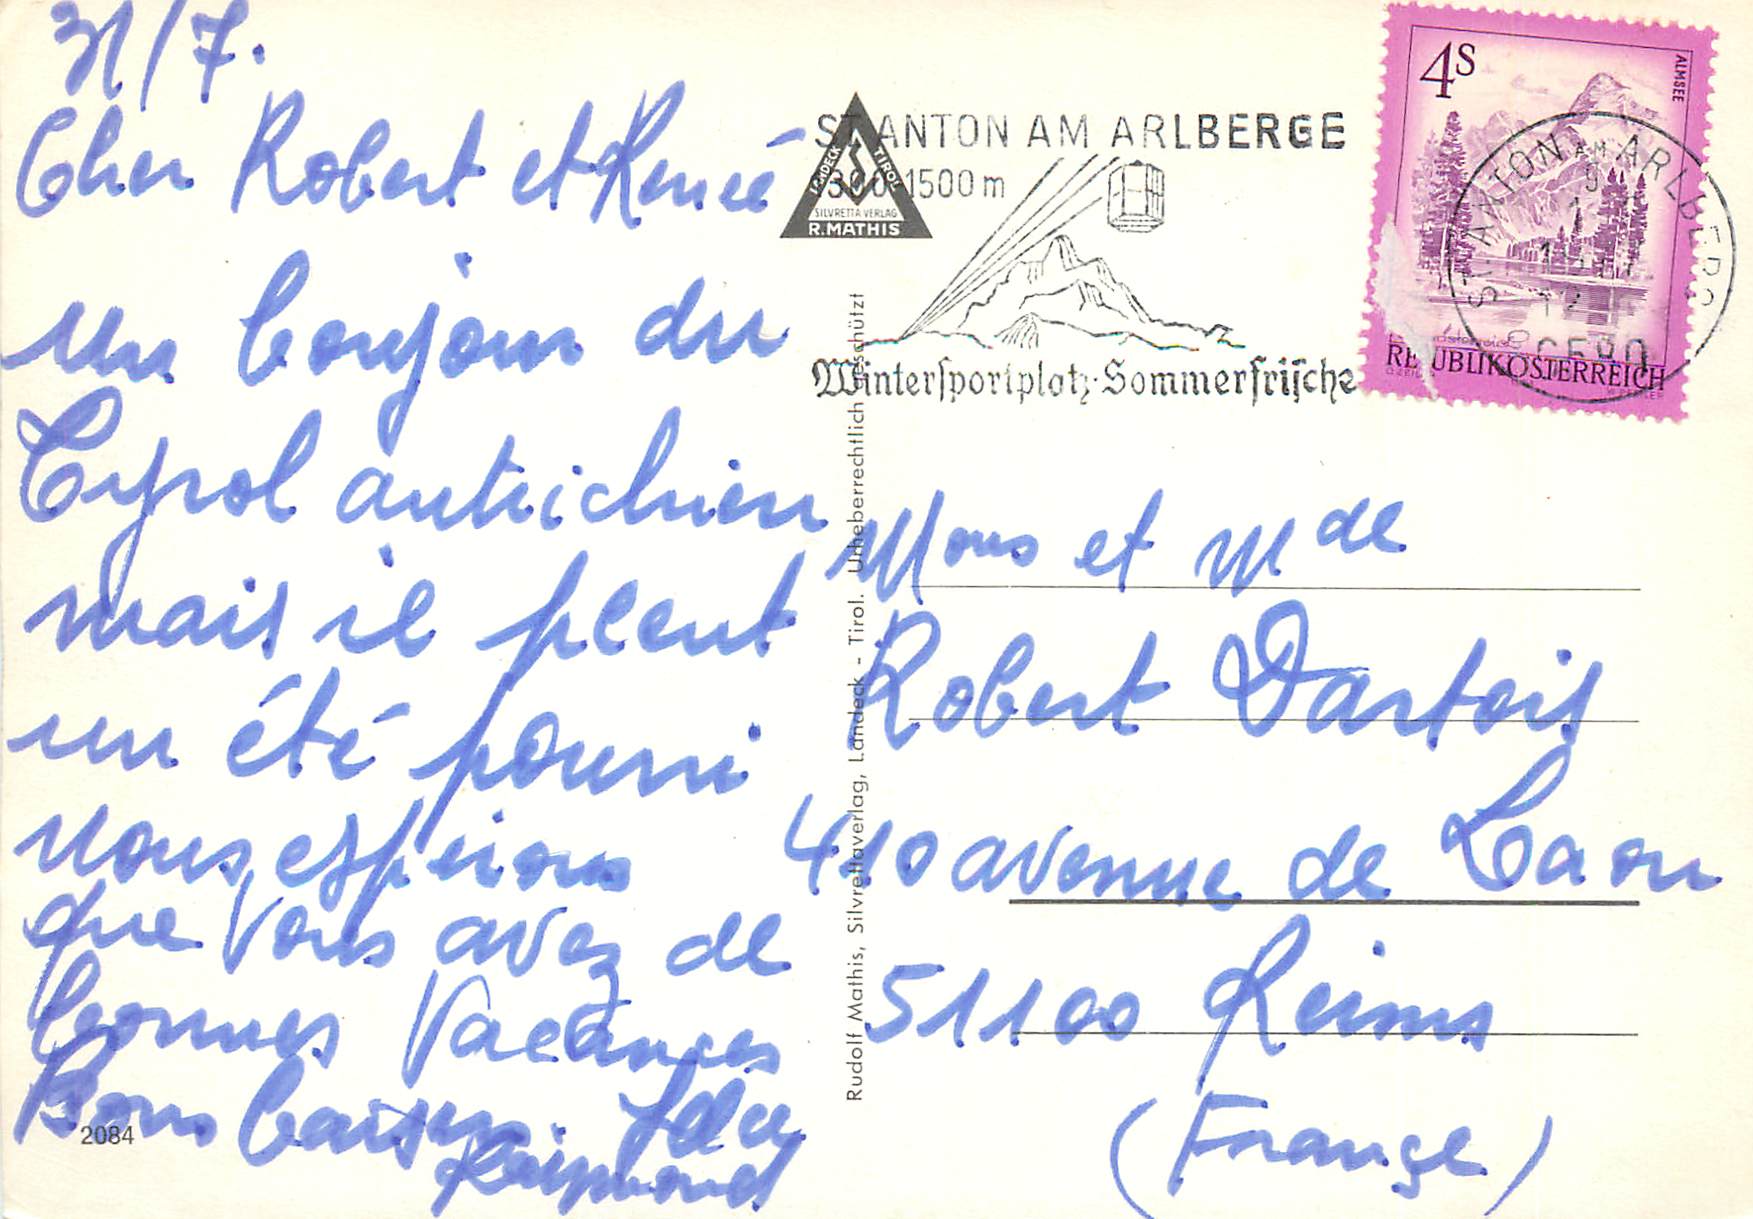 31/7.
Cher Robert et Renée
un bonjour du
Tyrol autrichien
mais il pleut
un été pourri
nous espérons
que vous avez de
bonnes vacances
Bons baisers. Ida
Raymond
2084
ST. ANTON AM ARLBERG
1300-1500 m
Wintersportplatz·Sommerfrische
LANDECK TIROL
SILVRETTA VERLAG
R. MATHIS
Rudolf Mathis, Silvrettaverlag, Landeck - Tirol. Urheberrechtlich geschützt
4S
ALMSEE
REPUBLIK ÖSTERREICH
ST. ANTON AM ARLBERG
Mons et Mde
Robert Dartois
410 avenue de Laon
51100 Reims
(France)